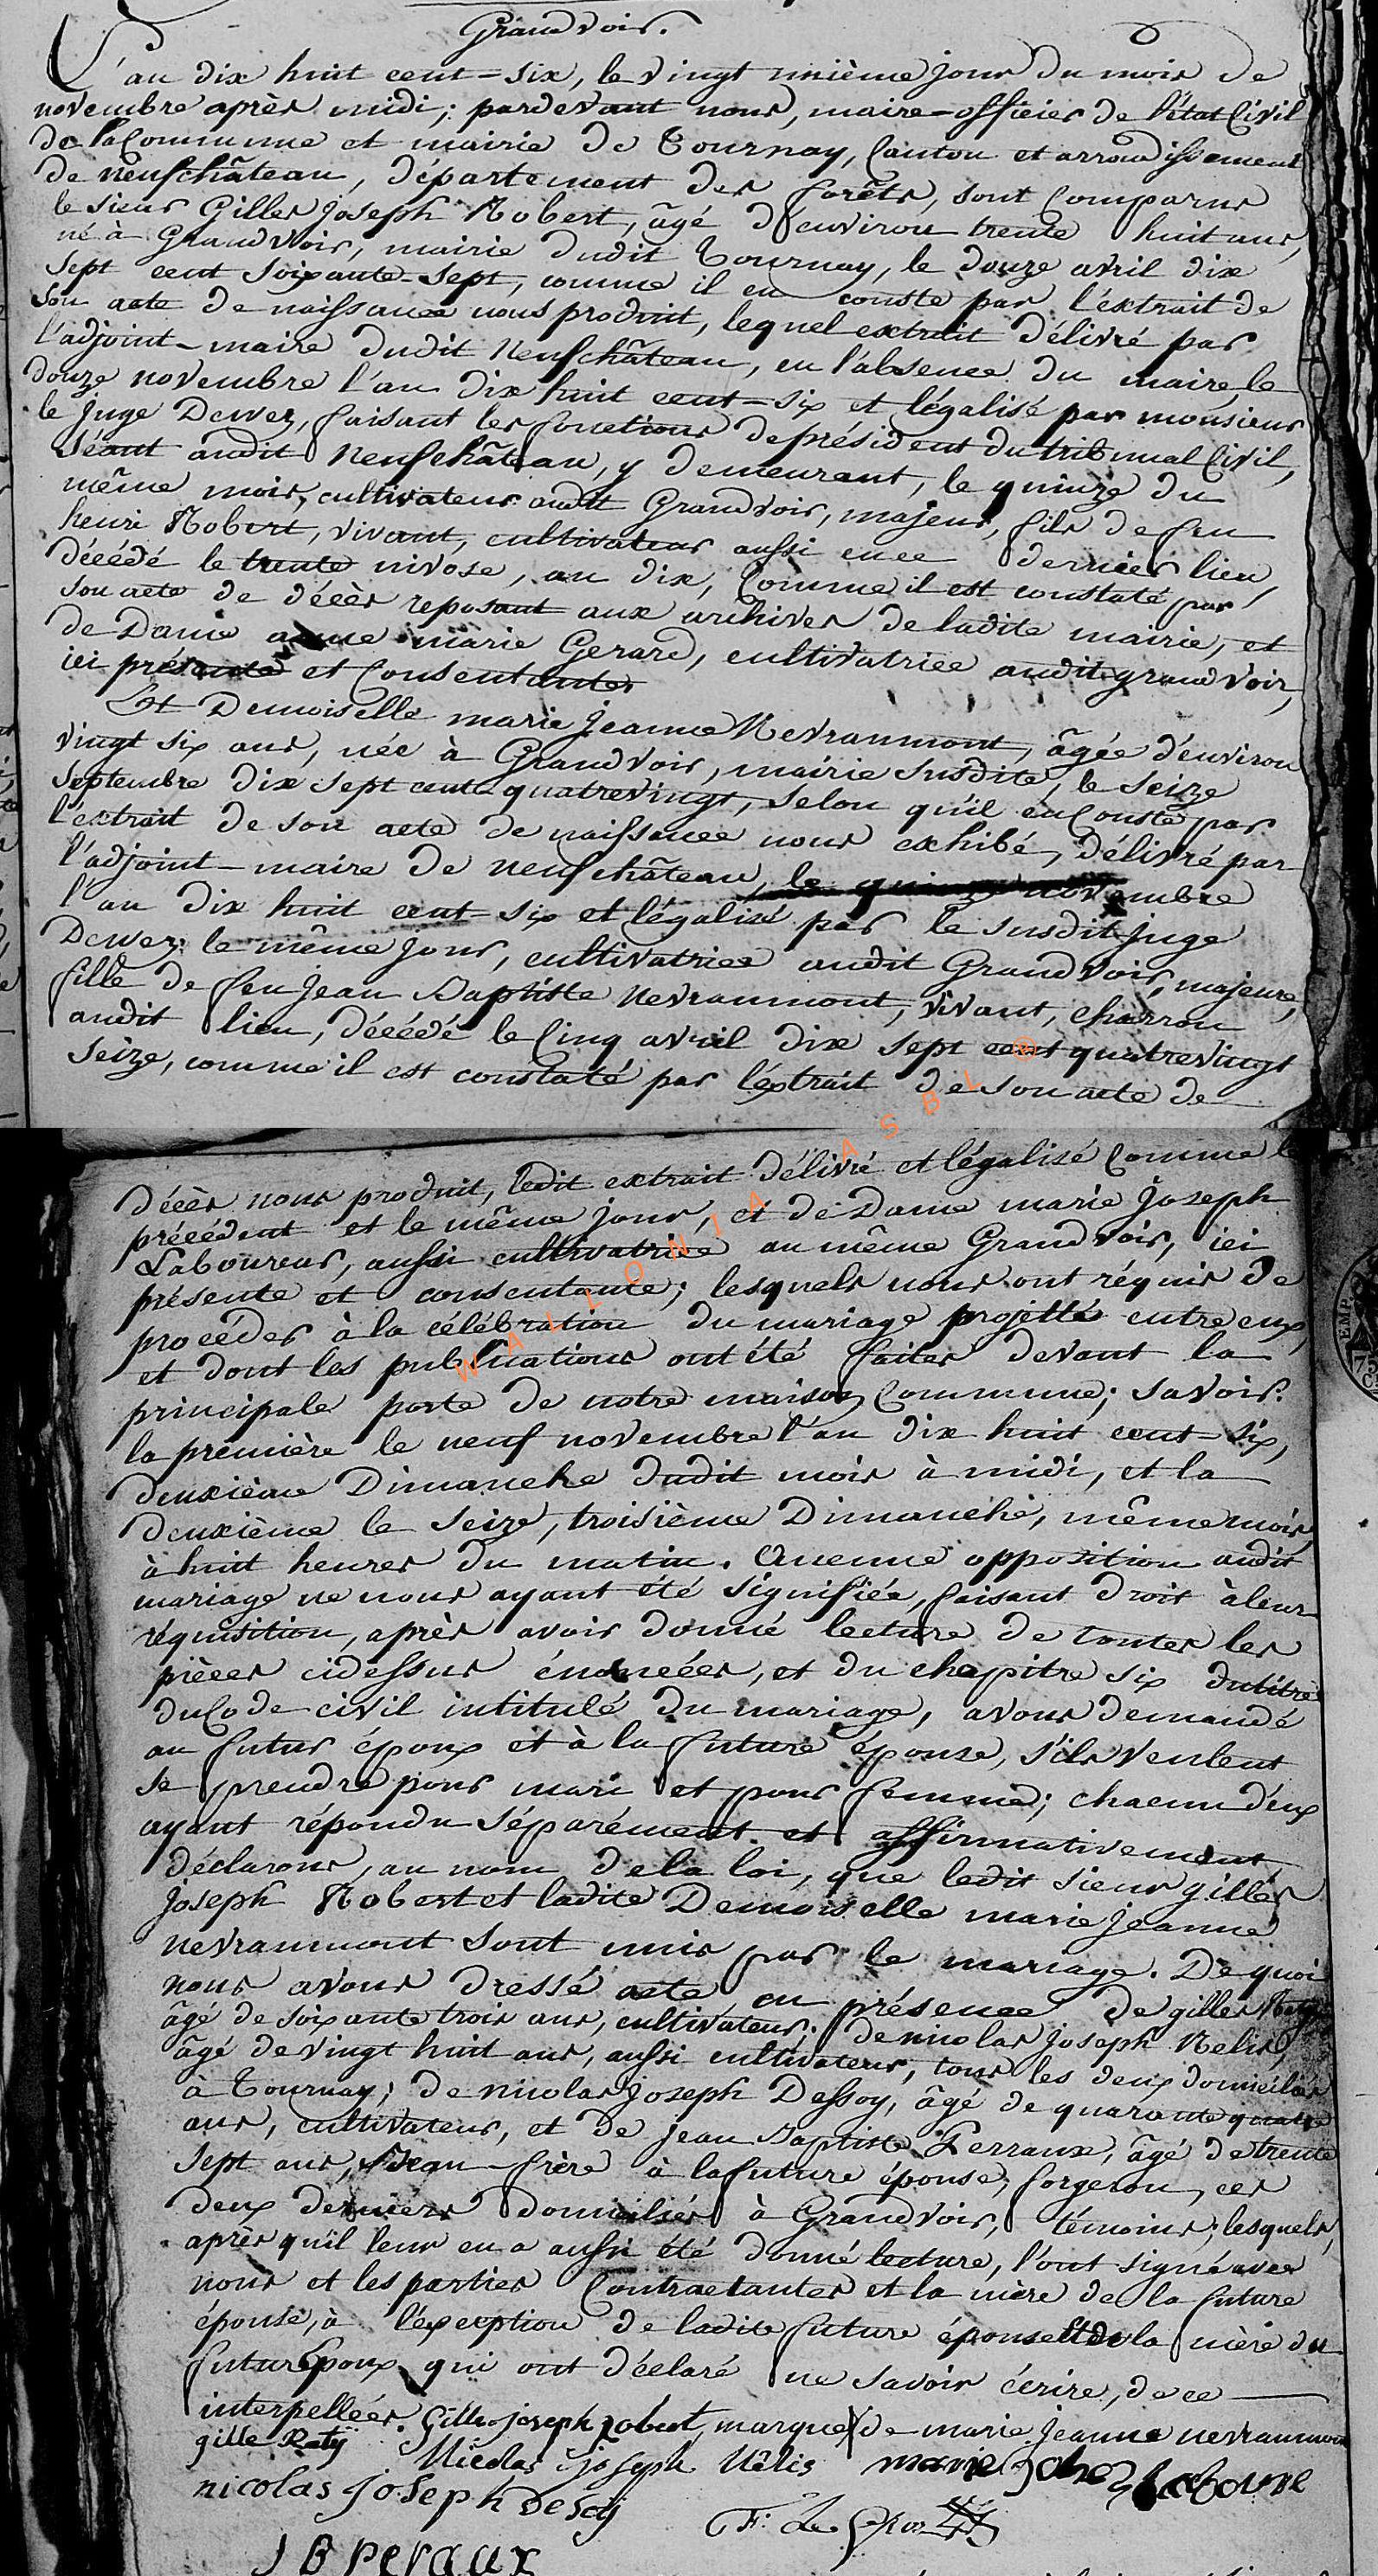 Grandvoir.
L'an dix huit cent=six, le vingt unième jour du mois de
novembre après midi; pardevant nous, maire=officier de l'état Civil
de la Commune et mairie de Tournay, Canton et arrondissement
de neufchâteau, département des forêts, sont Comparus
le sieur Gilles Joseph Robert, âgé d'environ trente huit ans,
né à Grandvoir, mairie dudit Tournay, le douze avril dix
sept cent soixante-sept, comme il en conste par l'extrait de
son acte de naissance nous produit, lequel extrait délivré par
l'adjoint-maire dudit neufchâteau, en l'absence du maire, le
douze novembre l'an dix huit cent-six et légalisé par monsieur
le juge Dewez, faisant les fonctions de président du tribunal Civil,
séant audit neufchâteau, y demeurant, le quinze du
même mois, cultivateur audit Grandvoir, majeur, fils de feu
henri Robert, vivant, cultivateur aussi en ce dernier lieu,
décédé le trente nivose, an dix, Comme il est constaté par
son acte de décès reposant aux archives de ladite mairie, et
de Dame anne marie Gerard, cultivatrice audit grandvoir,
ici présente et Consentante
Et Demoiselle marie jeanne Nevraumont, âgée d'environ
vingt six ans, née à Grandvoir, mairie susdite, le seize
septembre dix sept cent quatrevingt, selon qu'il en Conste par
l'extrait de son acte de naissance nous exhibé, délivré par
l'adjoint-maire de neufchâteau, le quinze novembre
l'an dix huit cent-six et légalisé par le susdit juge
Dewez, le même jour, cultivatrice audit Grandvoir, majeure,
fille de feu jean Baptiste nevraumont, vivant, charron
audit lieu, décédé le Cinq avril dix sept cent quatrevingt
seize, comme il est constaté par l'extrait de son acte de
décès nous produit, ledit extrait délivré et légalisé Comme le
précédent et le même jour, et de Dame marie joseph
Laboureur, aussi cultivatrice au même Grandvoir, ici
présente et consentante; lesquels nous ont réquis de
procéder à la célébration du mariage projetté entre eux,
et dont les publications ont été faites devant la
principale porte de notre maison Commune; savoir:
la première le neuf novembre l'an dix huit cent-six,
deuxième Dimanche dudit mois à midi, et la
deuxième le seize, troisième Dimanche, même mois,
à huit heures du matin. Aucune opposition audit
mariage ne nous ayant été signifiée, faisant droit à leur
réquisition, après avoir donné lecture de toutes les
pièces cidessus énoncées, et du chapitre six du titre
du Code civil intitulé du mariage, avons demandé
au futur époux et à la future épouse, s'ils veulent
se prendre pour mari et pour femme; chacun d'eux
ayant répondu séparément et affirmativement
déclarons, au nom de la loi, que ledit sieur gilles
joseph Robert et ladite Demoiselle marie jeanne
nevraumont sont unis par le mariage. De quoi
nous avons dressé acte en présence de gilles
âgé de soixante trois ans, cultivateur; de nicolas joseph Nelis,
âgé de vingt huit ans, aussi cultivateur, tous les deux domiciliés
à Tournay; de nicolas joseph Dessoy, âgé de quarante quatre
ans, cultivateur, et de jean Baptiste Perraux, âgé de trente
sept ans, Beau-frère à la future épouse, forgeron, ces
deux derniers domiciliés à Grandvoir, témoins; lesquels,
après qu'il leur en a aussi été donné lecture, l'ont signé avec
nous et les parties Contractantes et la mère de la future
épouse, à l'exception de ladite future épouse et de la mère du
futur Epoux qui ont déclaré ne savoir écrire, de ce
interpellées. Gilles joseph robert, marque X de marie jeanne nevraumont
gille Raty Nicolas Joseph Nélis marie joseph laboure
nicolas joseph desoy
J B peraux
WALLONIA ASBL ®